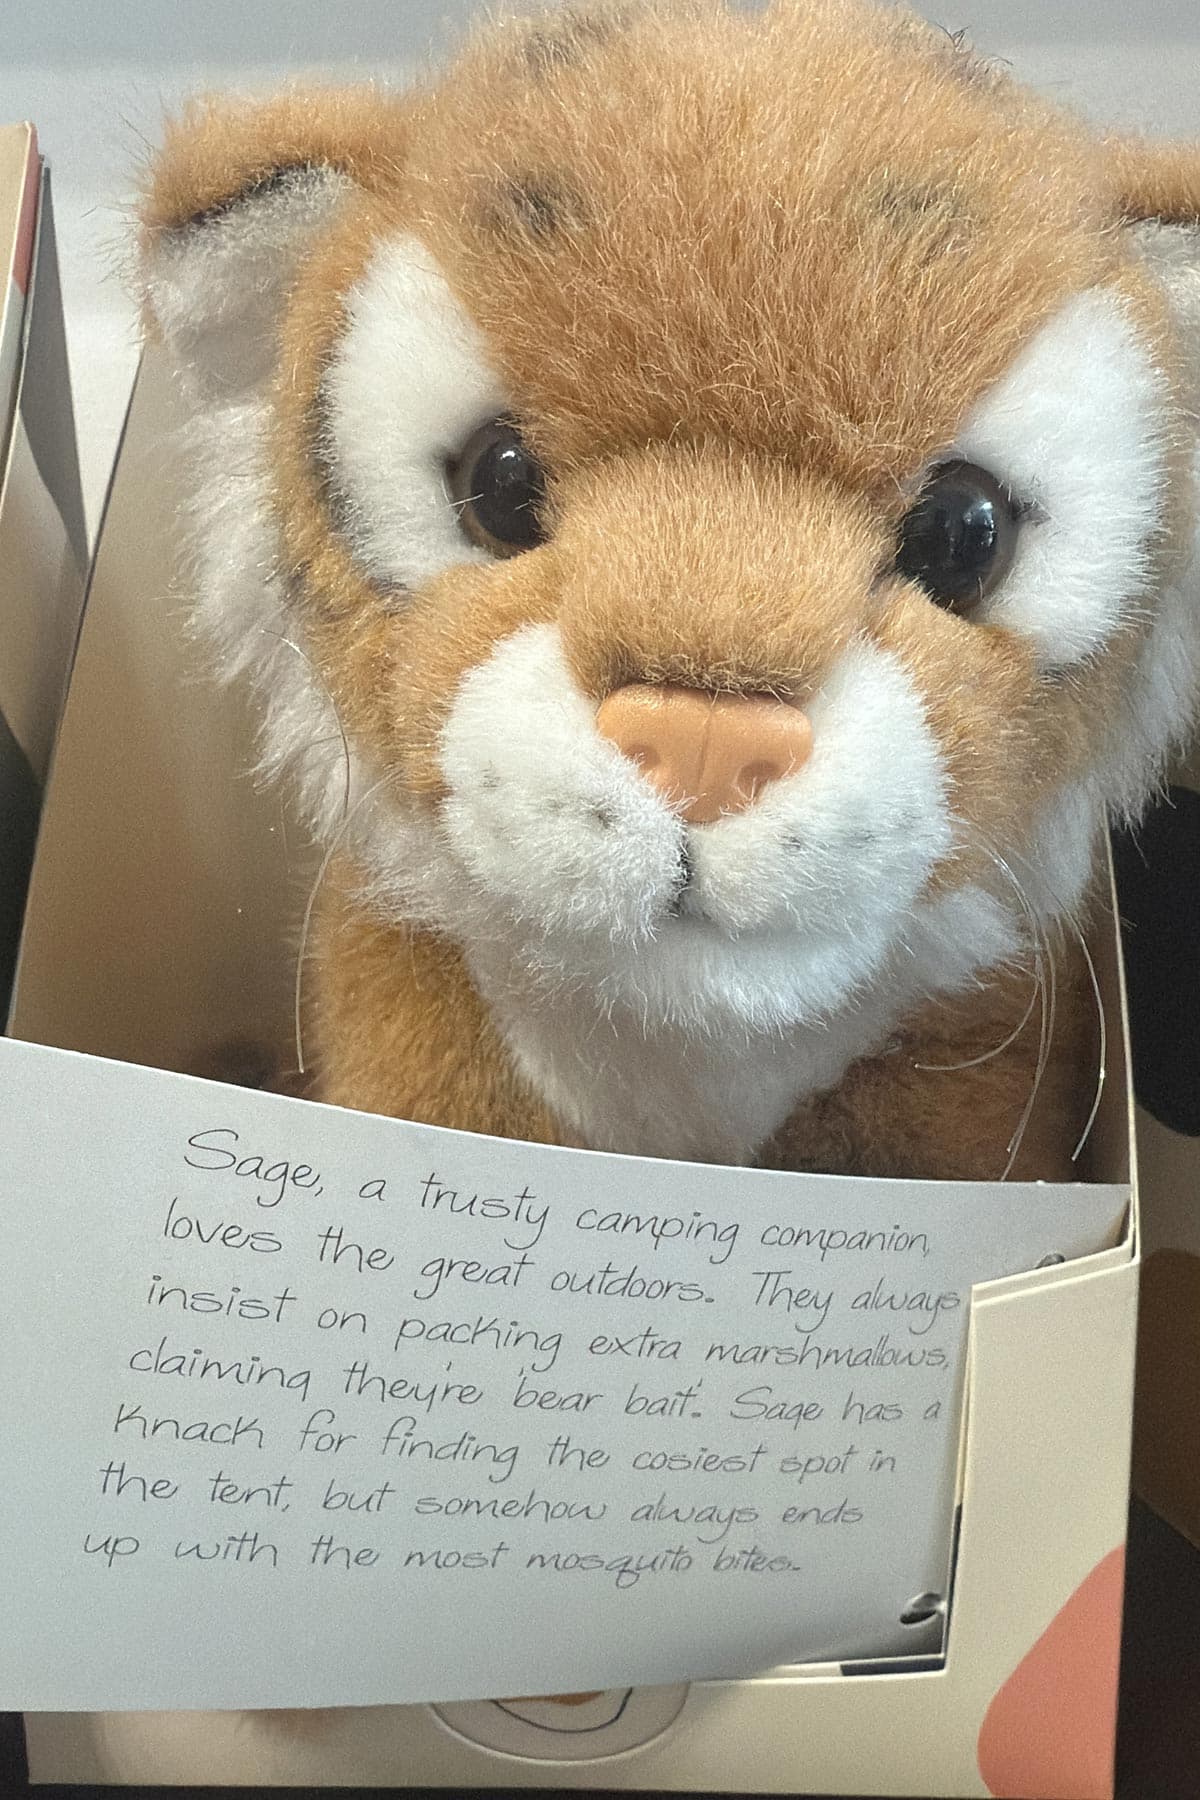 Sage, a trusty camping companion,
loves the great outdoors. They always
insist on packing extra marshmallows,
claiming they're 'bear bait'. Sage has a
knack for finding the cosiest spot in
the tent, but somehow always ends
up with the most mosquito bites.